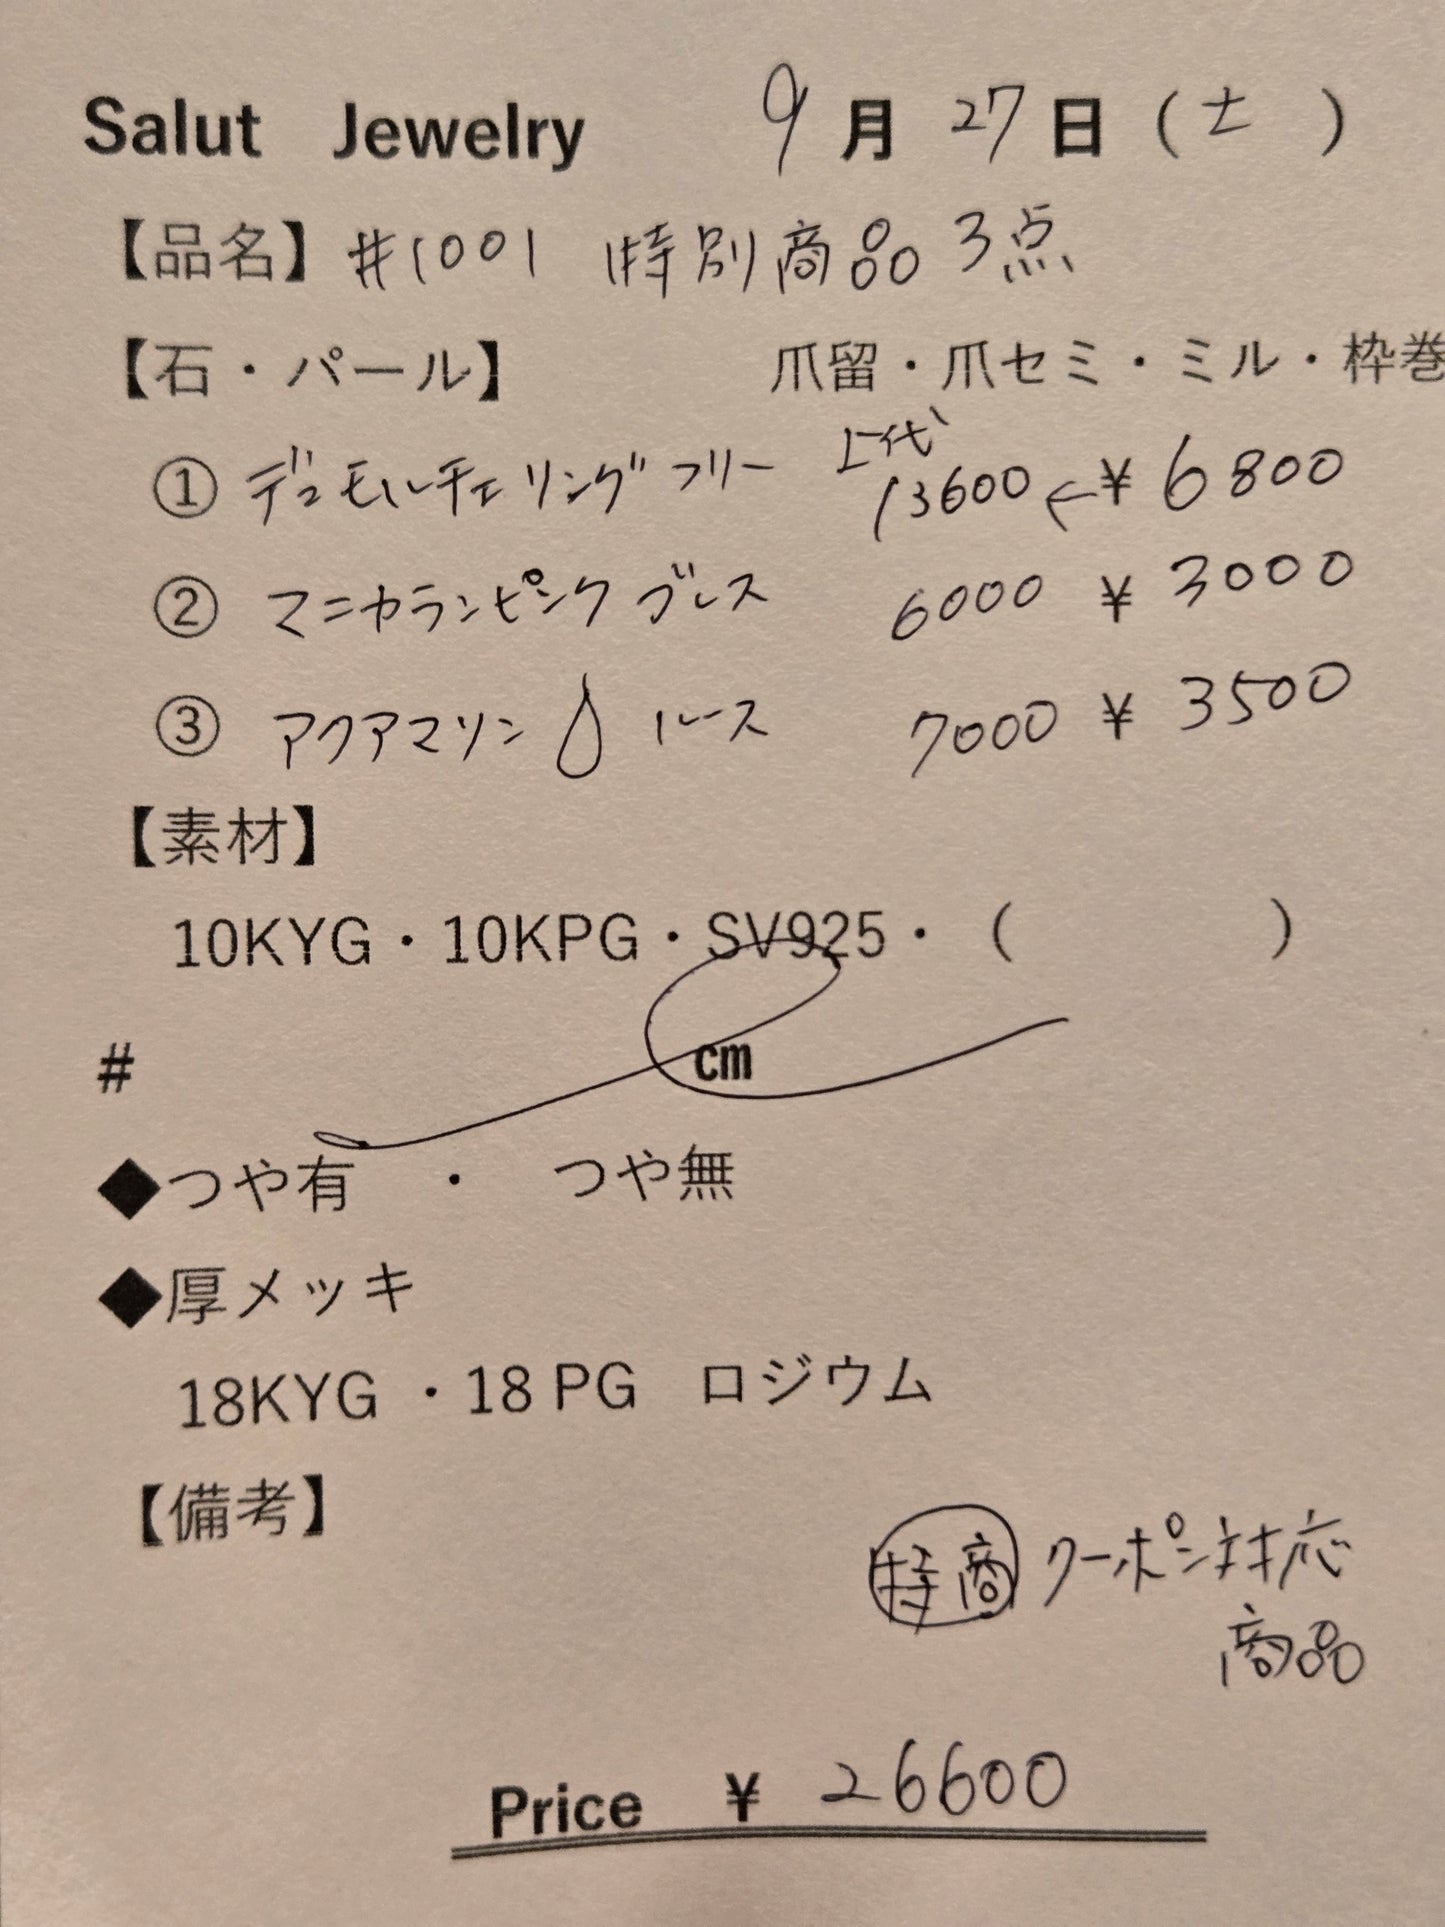 Salut Jewelry 9月27日(土)
【品名】#1001 特別商品3点
【石・パール】 爪留・爪セミ・ミル・枠巻
上代
① デュモルチェリングフリー 13600 ← ¥6800
② マニカランピンク ブレス 6000 ¥3000
③ アクアマリン ルース 7000 ¥3500
【素材】
10KYG・10KPG・SV925・( )
# cm
◆つや有 ・ つや無
◆厚メッキ
18KYG ・18PG ロジウム
【備考】
特商 クーポン対応
商品
Price ¥ 26600